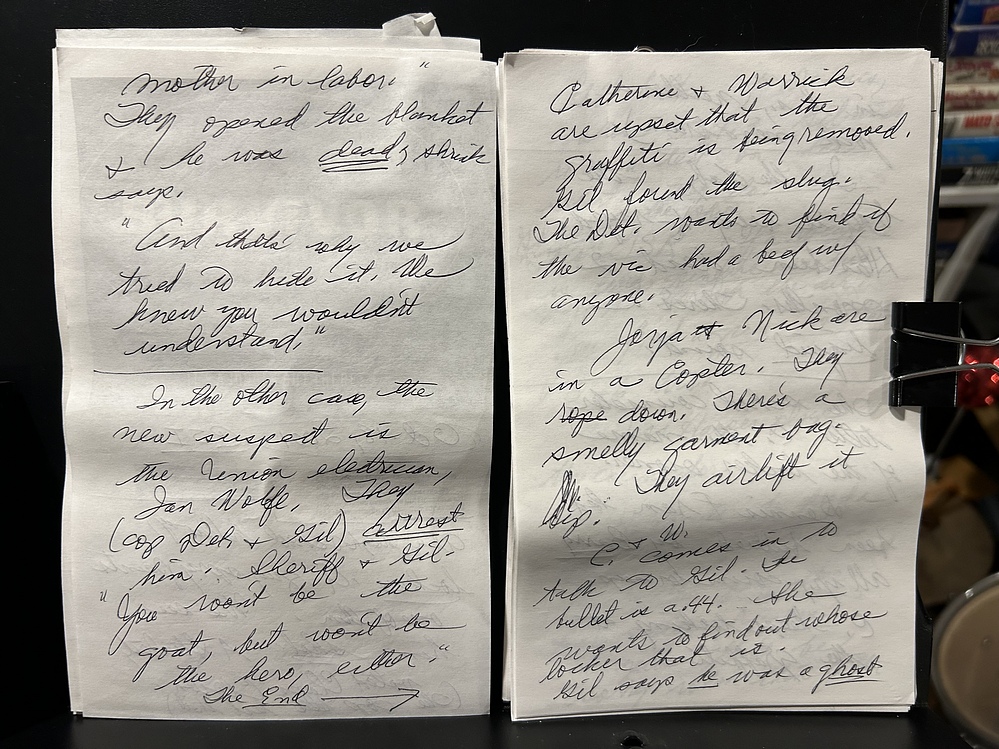 mother in labor."
They opened the blanket
& he was dead, shrink
says.
"And that's why we
tried to hide it. We
knew you wouldn't
understand."
In the other case, the
new suspect is
the Union electrician,
Ian Wolfe. They
(cop Det. & Gil) arrest
him. Sheriff & Gil.
"You won't be the
goat, but won't be
the hero, either."
The End
Catherine & Warrick
are upset that the
graffiti is being removed.
Gil found the slug.
The Det. wants to find if
the vic had a beef w/
anyone.
Jorja & Nick are
in a Copter. They
rope down. There's a
smelly garment bag.
They airlift it
up.
C. & W. comes in to
talk to Gil. The
bullet is a .44. She
wants to find out whose
locker that is.
Gil says he was a ghost